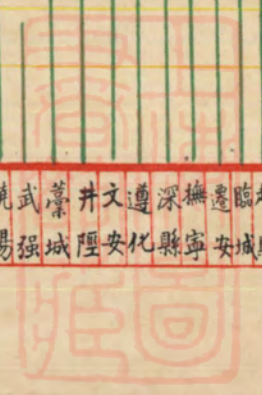 臨城
遷安
撫寧
深縣
遵化
文安
井陘
藁城
武强
饒陽